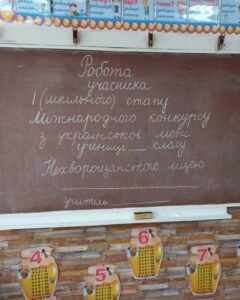 Робота
учасника
I (шкільного) етапу
Міжнародного конкурсу
з української мови
учениці __ класу
Нехворощанського ліцею
____________
учитель ________
4
5
6
7